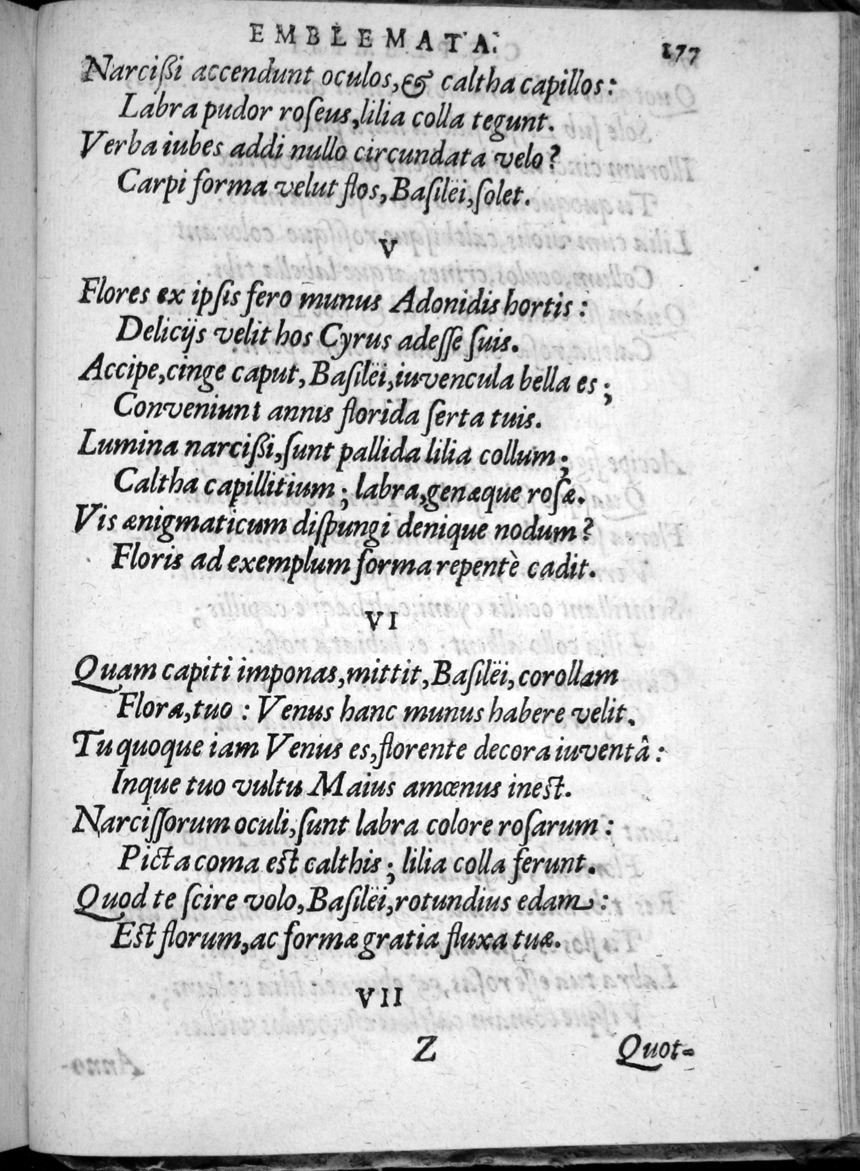 EMBLEMATA. 177
Narcißi accendunt oculos, & caltha capillos:
Labra pudor roſeus, lilia colla tegunt.
Verba iubes addi nullo circundata velo?
Carpi forma velut flos, Baſilëi, ſolet.
V
Flores ex ipſis fero munus Adonidis hortis:
Delicijs velit hos Cyrus adeſſe ſuis.
Accipe, cinge caput, Baſilëi, iuvencula bella es;
Conveniunt annis florida ſerta tuis.
Lumina narcißi, ſunt pallida lilia collum;
Caltha capillitium; labra, genæque roſæ.
Vis ænigmaticum diſpungi denique nodum?
Floris ad exemplum forma repentè cadit.
VI
Quam capiti imponas, mittit, Baſilëi, corollam
Flora, tuo: Venus hanc munus habere velit.
Tu quoque iam Venus es, florente decora iuventâ:
Inque tuo vultu Maius amœnus ineſt.
Narciſſorum oculi, ſunt labra colore roſarum:
Picta coma eſt calthis; lilia colla ferunt.
Quod te ſcire volo, Baſilëi, rotundius edam:
Eſt florum, ac formæ gratia fluxa tuæ.
VII
Z Quot-